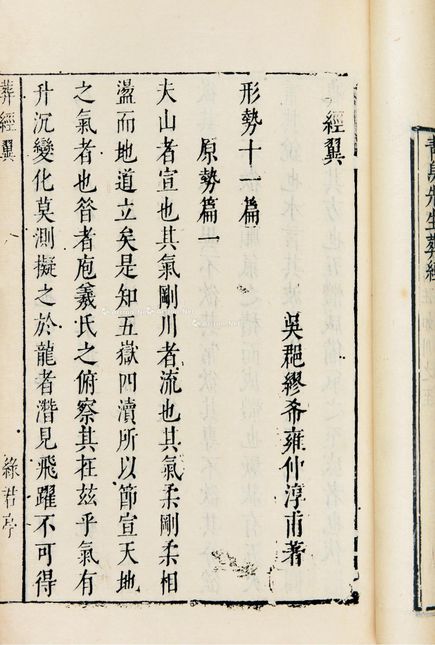 經翼
吳郡繆希雍仲淳甫著
形勢十一篇
原勢篇一
夫山者宣也其氣剛川者流也其氣柔剛柔相
盪而地道立矣是知五嶽四瀆所以節宣天地
之氣者也昝者庖羲氏之俯察其在玆乎氣有
升沉變化莫測擬之於龍者潛見飛躍不可得
葬經翼
八
綠君亭
青烏先生葬經